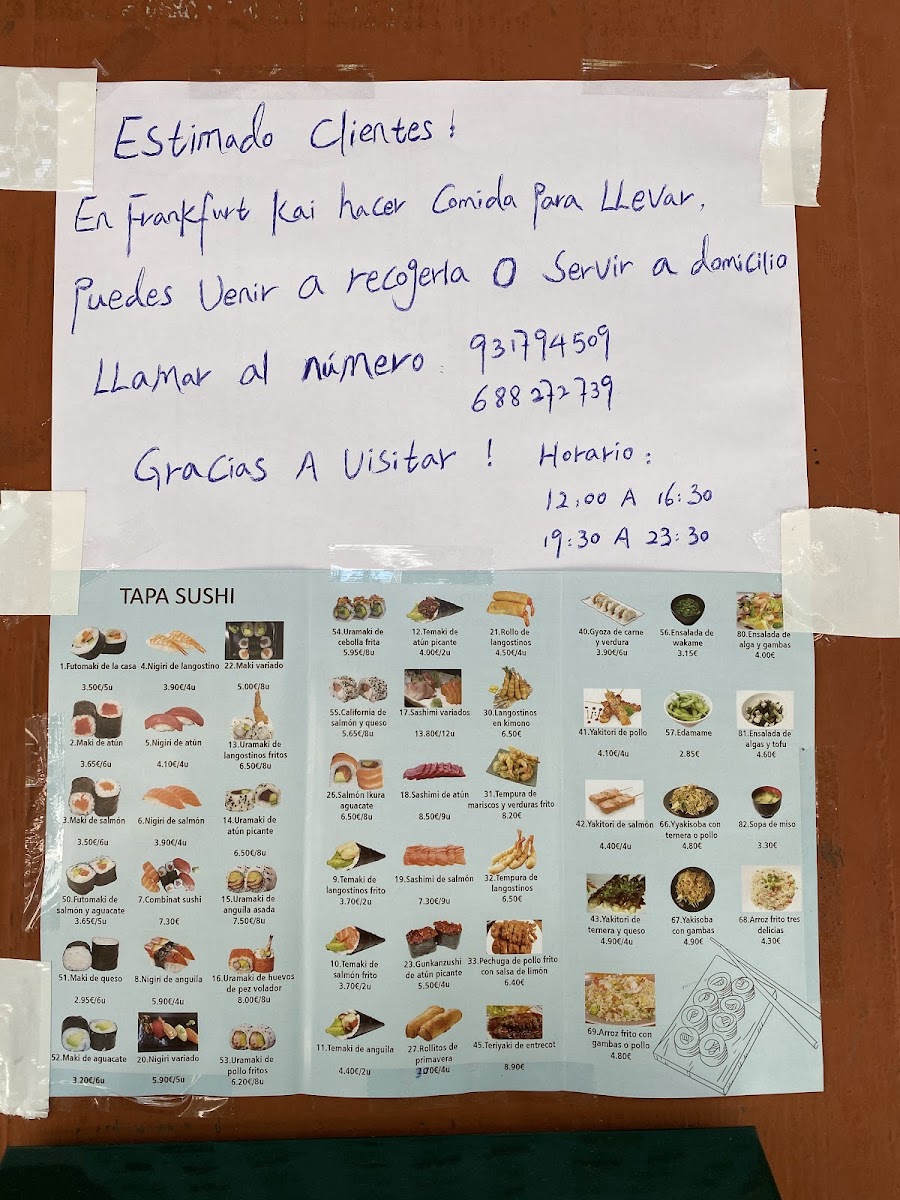 Estimado Clientes!
En Frankfurt Kai hacer Comida Para LLevar,
Puedes Venir a recogerla O Servir a domicilio
LLamar al número: 931794509
688 272 739
Gracias A Visitar !
Horario:
12:00 A 16:30
19:30 A 23:30
TAPA SUSHI
1.Futomaki de la casa
3.50€/5u
4.Nigiri de langostino
3.90€/4u
22.Maki variado
5.00€/8u
2.Maki de atún
3.65€/6u
5.Nigiri de atún
4.10€/4u
13.Uramaki de
langostinos fritos
6.50€/8u
3.Maki de salmón
3.50€/6u
6.Nigiri de salmón
3.90€/4u
14.Uramaki de
atún picante
6.50€/8u
50.Futomaki de
salmón y aguacate
3.65€/5u
7.Combinat sushi
7.30€
15.Uramaki de
anguila asada
7.50€/8u
51.Maki de queso
2.95€/6u
8.Nigiri de anguila
5.90€/4u
16.Uramaki de huevos
de pez volador
8.00€/8u
52.Maki de aguacate
3.20€/6u
20.Nigiri variado
5.90€/5u
53.Uramaki de
pollo fritos
6.20€/8u
54.Uramaki de
cebolla frita
5.95€/8u
12.Temaki de
atún picante
4.00€/2u
21.Rollo de
langostinos
4.50€/4u
55.California de
salmón y queso
5.65€/8u
17.Sashimi variados
13.80€/12u
30.Langostinos
en kimono
6.50€
26.Salmón Ikura
aguacate
6.50€/8u
18.Sashimi de atún
8.50€/9u
31.Tempura de
mariscos y verduras frito
8.20€
9.Temaki de
langostinos frito
3.70€/2u
19.Sashimi de salmón
7.30€/9u
32.Tempura de
langostinos
6.50€
10.Temaki de
salmón frito
3.70€/2u
23.Gunkanzushi
de atún picante
5.50€/4u
33.Pechuga de pollo frito
con salsa de limón
6.40€
11.Temaki de anguila
4.40€/2u
27.Rollitos de
primavera
45.Teriyaki de entrecot
8.90€
40.Gyoza de carne
y verdura
3.90€/6u
56.Ensalada de
wakame
3.15€
80.Ensalada de
alga y gambas
4.00€
41.Yakitori de pollo
4.10€/4u
57.Edamame
2.85€
81.Ensalada de
algas y tofu
4.60€
42.Yakitori de salmón
4.40€/4u
66.Yyakisoba con
ternera o pollo
4.80€
82.Sopa de miso
3.30€
43.Yakitori de
ternera y queso
4.90€/4u
67.Yakisoba
con gambas
4.90€
68.Arroz frito tres
delicias
4.30€
69.Arroz frito con
gambas o pollo
4.80€